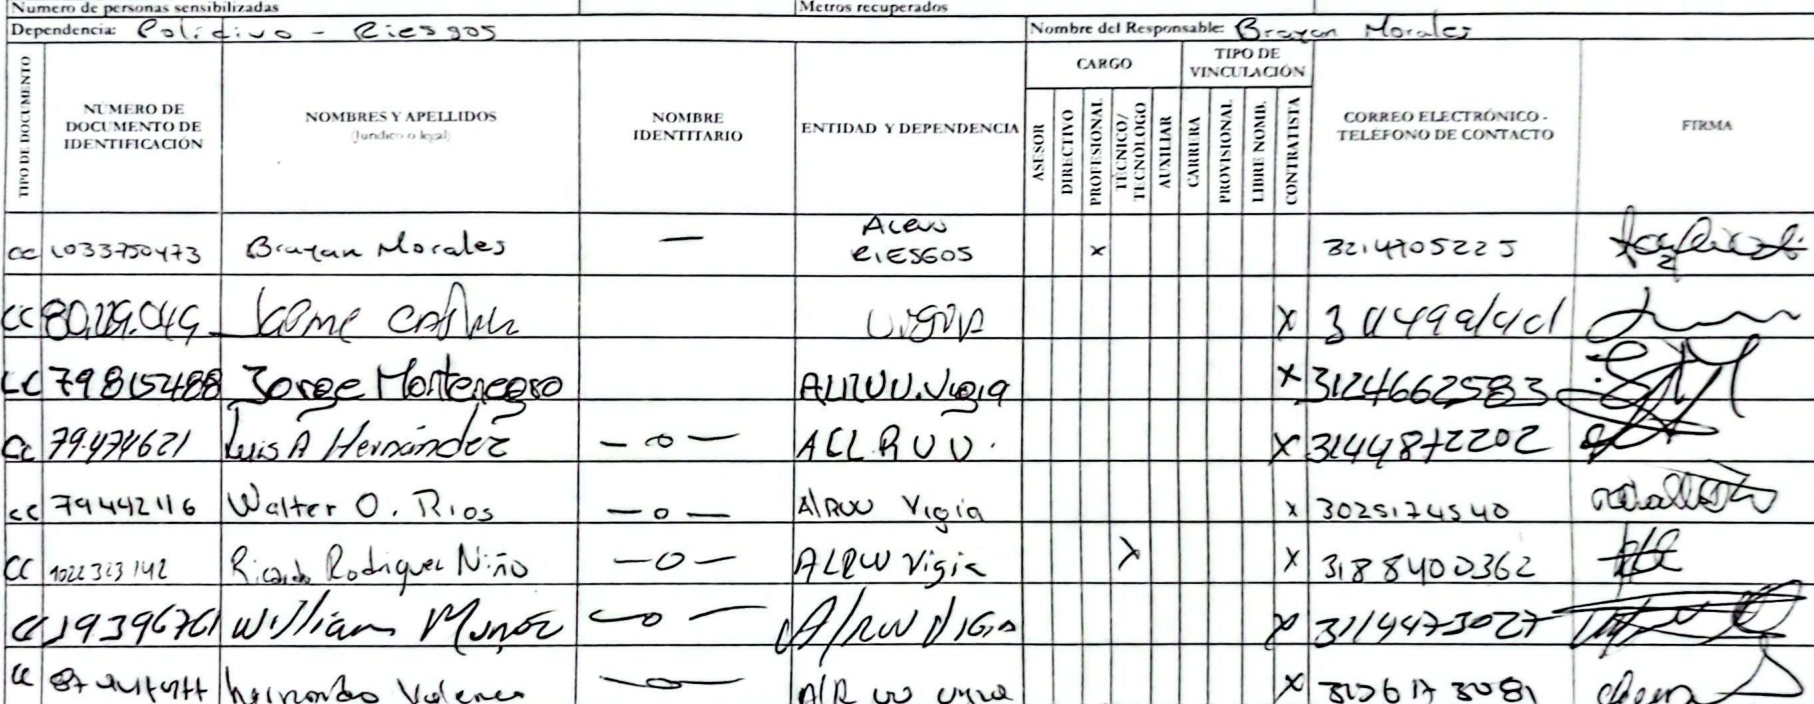 Numero de personas sensibilizadas Metros recuperados
Dependencia: - Riesgos Nombre del Responsable: Brayan Morales
TIPO DE DOCUMENTO
NÚMERO DE DOCUMENTO DE IDENTIFICACIÓN
NOMBRES Y APELLIDOS
(Juridico o legal)
NOMBRE IDENTITARIO
ENTIDAD Y DEPENDENCIA
CARGO
ASESOR
DIRECTIVO
PROFESIONAL
TÉCNICO/ TECNOLOGO
AUXILIAR
TIPO DE VINCULACIÓN
CARRERA
PROVISIONAL
LIBRE NOMB.
CONTRATISTA
CORREO ELECTRÓNICO - TELEFONO DE CONTACTO
FIRMA
cc 1033750473 Brayan Morales — RIESGOS x 3214705225
CC Jaime X
CC 79815488 Jorge Montenegro ALRUU.Vigia X 3124662583
CC 79.474621 Luis A Hernández —o— ACLRUU. X 3144872202
cc 79442116 Walter O. Rios —o— AlRUU Vigia x 3025174540
CC 1022323142 Ricardo Rodriguez Niño —o— ALRUU Vigia X X 3188400362
CC 19396761 William Muñoz —o— AlRUU Vigia X 3114473027
cc Valencia —o— X